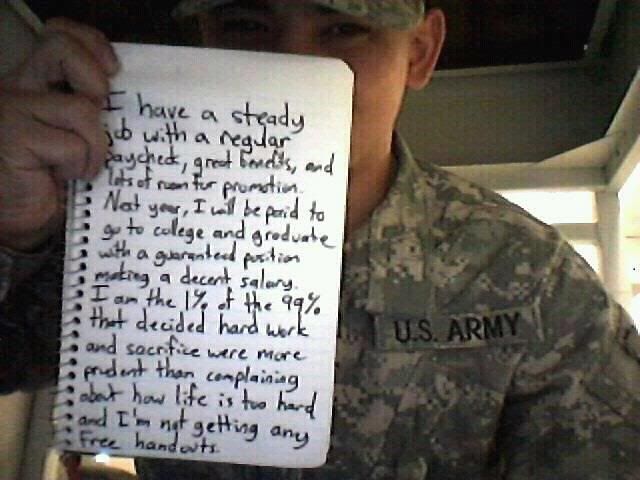 I have a steady
job with a regular
paycheck, great benefits, and
lots of room for promotion.
Next year, I will be paid to
go to college and graduate
with a guaranteed position
making a decent salary.
I am the 1% of the 99%
that decided hard work
and sacrifice were more
prudent than complaining
about how life is too hard
and I'm not getting any
free handouts.
U.S. ARMY